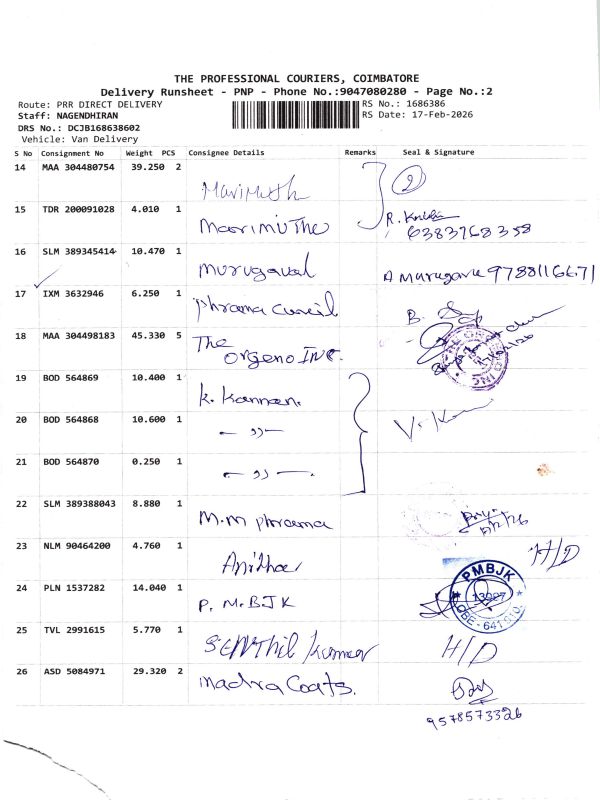 THE PROFESSIONAL COURIERS, COIMBATORE
Delivery Runsheet - PNP - Phone No.:9047080280 - Page No.:2
Route: PRR DIRECT DELIVERY
RS No.: 1686386
Staff: NAGENDHIRAN
RS Date: 17-Feb-2026
DRS No.: DCJB168638602
Vehicle: Van Delivery
S No Consignment No Weight PCS Consignee Details Remarks Seal & Signature
14 MAA 304480754 39.250 2 Marimuth 2
15 TDR 200091028 4.010 1 Maarimuthu R.
6383768358
16 SLM 389345414 10.470 1 Murugaval A Murugavel 9788116671
17 IXM 3632946 6.250 1 Phrama Council B.
18 MAA 304498183 45.330 5 The
Orgeno INC.
19 BOD 564869 10.400 1 K. Kannan.
20 BOD 564868 10.600 1 — " — V.
21 BOD 564870 0.250 1 — " —
22 SLM 389388043 8.880 1 M.M phrama
23 NLM 90464200 4.760 1 Anitha H/D
24 PLN 1537282 14.040 1 P. M. B J K PMBJK
25 TVL 2991615 5.770 1 SENthil Kumar H/D
26 ASD 5084971 29.320 2 Madra Coats.
9578573326